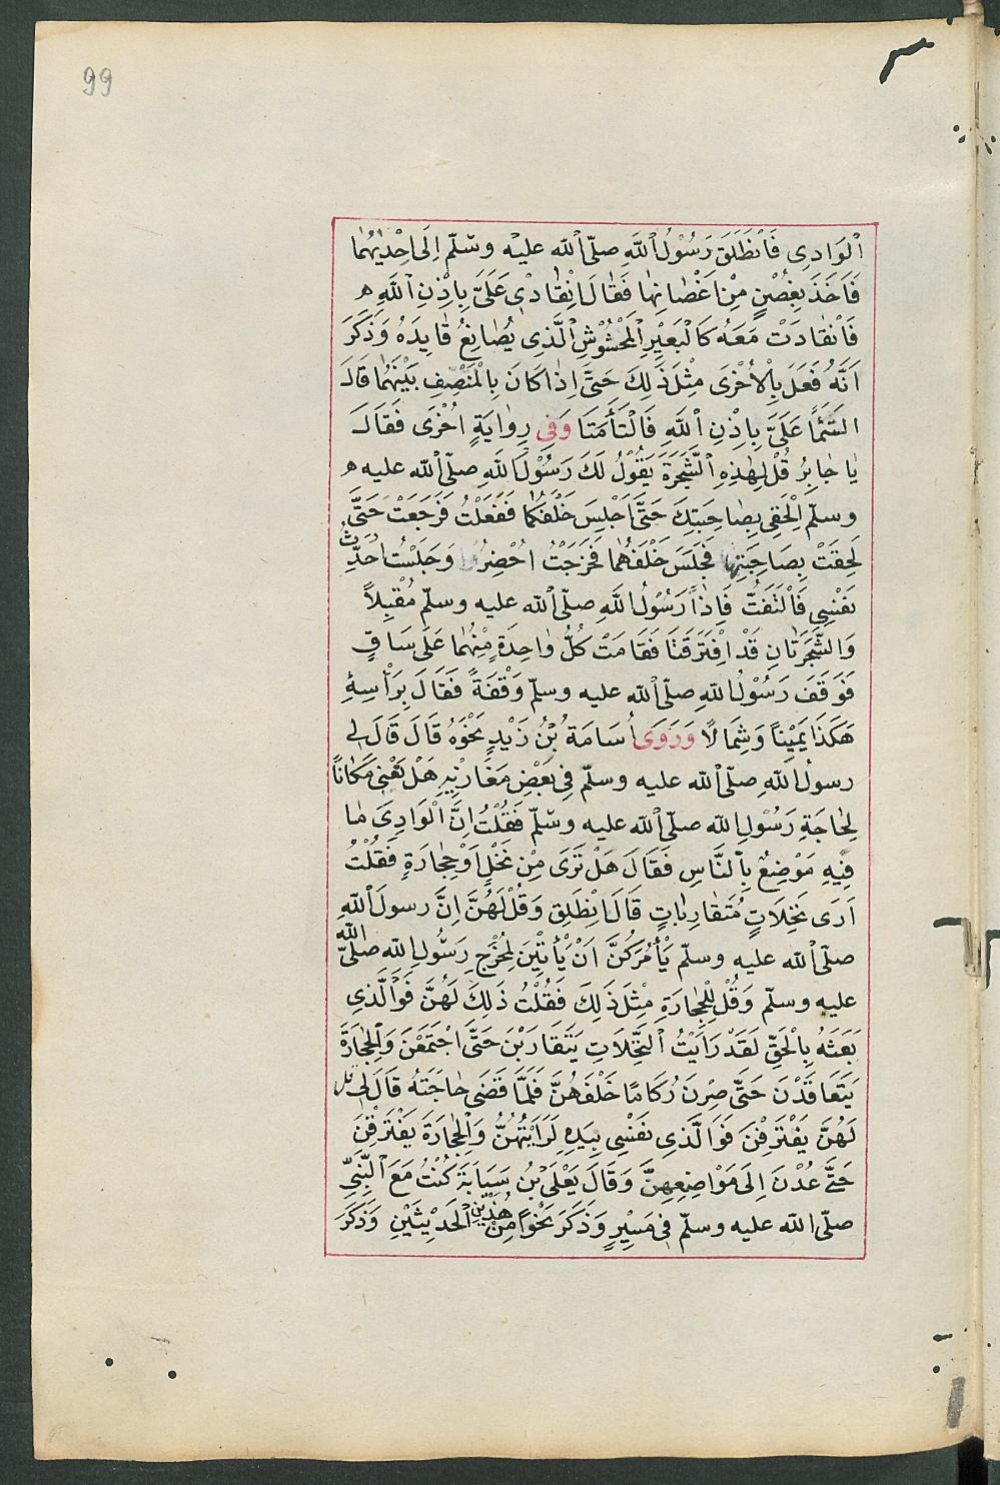 99
اَلْوَادِى فَانْطَلَقَ رَسُوْلُ اللّٰهِ صلّى اللّٰه عليْه وسلّم اِلَى اِحْدٰيهُمَا
فَاَخَذَ بِغُصْنٍ مِنْ اَغْصَانِهَا فَقَالَ اِنْقَادِىْ عَلَىَّ بِاِذْنِ اللّٰهِ ه
فَانْقَادَتْ مَعَهُ كَالْبَعِيْرِ الْمَخْشُوْشِ الَّذِى يُصَانِعُ قَايِدَهُ وَذَكَرَ
اَنَّهُ فَعَلَ بِالْاُخْرَى مِثْلَ ذَلِكَ حَتَّى اِذَا كَانَ بِالْمَنْصِفِ بَيْنَهُمَا قَالَ
الْتَئِمَا عَلَىَّ بِاِذْنِ اللّٰهِ فَالْتَأَمَتَا وَفِى رِوَايَةٍ اُخْرَى فَقَالَ
يَا جَابِرُ قُلْ لِهٰذِهِ الشَّجَرَةِ يَقُوْلُ لَكَ رَسُوْلُ اللّٰهِ صلّى اللّٰه عليه ه
وسلّم اِلْحَقِى بِصَاحِبَتِكَ حَتَّى اَجْلِسَ خَلْفَكُمَا فَفَعَلْتُ فَرَجَعَتْ حَتَّى
لَحِقَتْ بِصَاحِبَتِهَا فَجَلَسَ خَلْفَهُمَا فَخَرَجْتُ اُحْضِرُ وَجَلَسْتُ اُحَدِّثُ
نَفْسِى فَالْتَفَتُّ فَاِذَا رَسُوْلُ اللّٰهِ صلّى اللّٰه عليه وسلّم مُقْبِلاً
وَالشَّجَرَتَانِ قَدْ اِفْتَرَقَتَا فَقَامَتْ كُلُّ وَاحِدَةٍ مِنْهُمَا عَلَى سَاقٍ
فَوَقَفَ رَسُوْلُ اللّٰهِ صلّى اللّٰه عليه وسلّم وَقْفَةً فَقَالَ بِرَأْسِهِ
هَكَذَا يَمِيْنًا وَشِمَالًا وَرَوَى اُسَامَةُ بْنُ زَيْدٍ نَحْوَهُ قَالَ قَالَ لِى
رسولُ اللّٰهِ صلّى اللّٰه عليه وسلّم فِى بَعْضِ مَغَازِيْهِ هَلْ يَعْنِى مَكَانًا
لِحَاجَةِ رَسُوْلِ اللّٰه صلّى اللّٰه عليه وسلّم فَقُلْتُ اِنَّ الْوَادِىَ مَا
فِيْهِ مَوْضِعٌ بِالنَّاسِ فَقَالَ هَلْ تَرَى مِنْ نَخْلٍ اَوْ حِجَارَةٍ فَقُلْتُ
اَرَى نَخِلَاتٍ مُتَقَارِبَاتٍ قَالَ اِنْطَلِقْ وَقُلْ لَهُنَّ اِنَّ رسولَ اللّٰهِ
صلّى اللّٰه عليه وسلّم يَأْمُرَكُنَّ اَنْ يَأْتِيْنَ لِمَخْرَجِ رَسُوْلِ اللّٰه صلّى اللّٰه
عليه وسلّم وَقُلْ لِلْحِجَارَةِ مِثْلَ ذَلِكَ فَقُلْتُ ذَلِكَ لَهُنَّ فَوَالَّذِى
بَعَثَهُ بِالْحَقِّ لَقَدْ رَاَيْتُ النَّخِلَاتِ يَتَقَارَبْنَ حَتَّى اجْتَمَعْنَ وَالْحِجَارَةَ
يَتَعَاقَدْنَ حَتَّى صِرْنَ رُكَامًا خَلْفَهُنَّ فَلَمَّا قَضَى حَاجَتَهُ قَالَ لِى قل
لَهُنَّ يَفْتَرِقْنَ فَوَالَّذِى نَفْسِى بِيَدِهِ لَرَاَيْتُهُنَّ وَالْحِجَارَةَ يَفْتَرِقْنَ
حَتَّى عُدْنَ اِلَى مَوَاضِعِهِنَّ وَقَالَ يَعْلَى بْنُ سَيَابَةَ كُنْتُ مَعَ النَّبِىِّ
صلّى اللّٰه عليه وسلّم فِى مَسِيْرٍ وَذَكَرَ نَحْوًا مِنْ هٰذَيْنِ الْحَدِيْثَيْنِ وَذَكَرَ